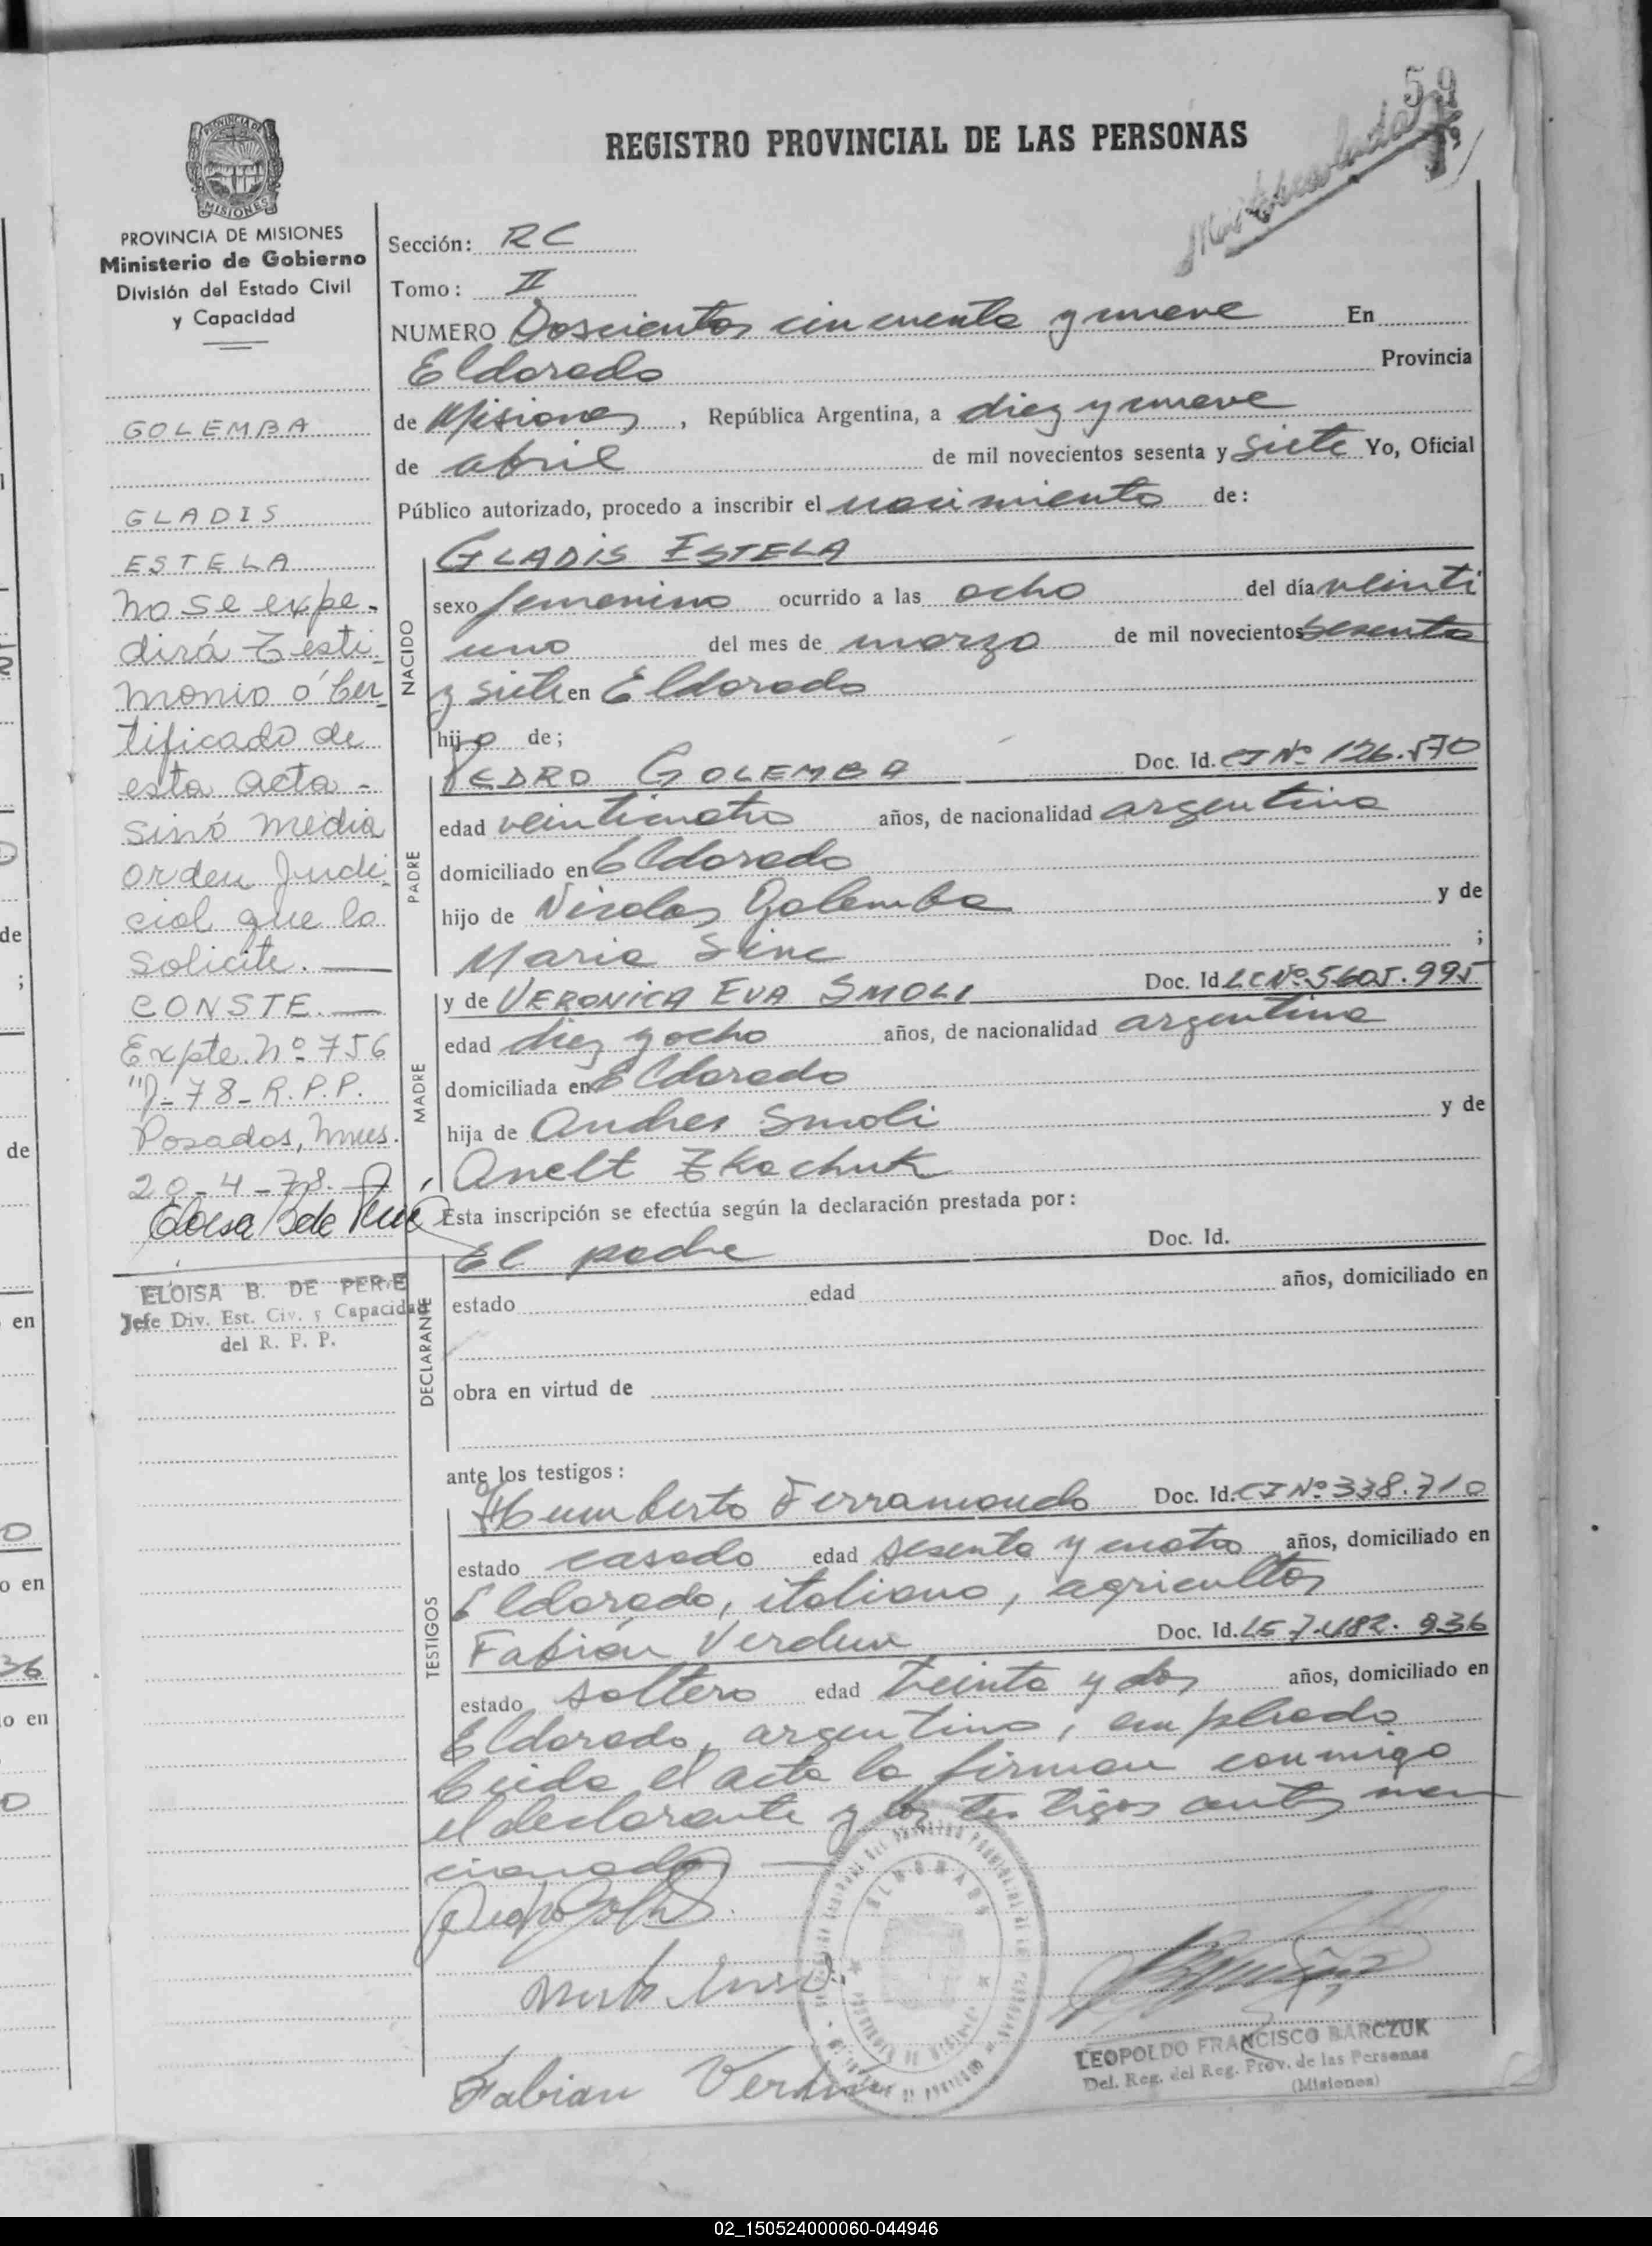 59
REGISTRO PROVINCIAL DE LAS PERSONAS
PROVINCIA DE
MISIONES
PROVINCIA DE MISIONES
Ministerio de Gobierno
División del Estado Civil
y Capacidad
GOLEMBA
GLADIS
ESTELA
No se expe-
dirá Testi-
monio ó Cer-
tificado de
esta acta -
sinó media
orden Judi-
cial que lo
solicite.
CONSTE.
Expte. Nº 756
78-R.P.P.
Posadas, Mnes.
20-4-78.
ELOISA B. DE PERIE
Jefe Div. Est. Civ. y Capacidad
del R. P. P.
Sección: RC
Tomo: II
NUMERO Doscientos cincuenta y nueve En
Eldorado Provincia
de Misiones, República Argentina, a diez y nueve
de abril de mil novecientos sesenta y siete Yo, Oficial
Público autorizado, procedo a inscribir el nacimiento de:
NACIDO
GLADIS ESTELA
sexo femenino ocurrido a las ocho del día veinti
uno del mes de marzo de mil novecientos sesenta
y siete en Eldorado
hijo de;
PADRE
PEDRO GOLEMBA Doc. Id. CI Nº 126.570
edad veinticuatro años, de nacionalidad argentina
domiciliado en Eldorado
hijo de Nicolas Golemba y de
Maria Sinc ;
MADRE
y de VERONICA EVA SMOLI Doc. Id LC Nº 5.605.995
edad diez y ocho años, de nacionalidad argentina
domiciliada en Eldorado
hija de Andres Smoli y de
Anelt Zkachuk
Esta inscripción se efectúa según la declaración prestada por:
DECLARANTE
El padre Doc. Id.
estado edad años, domiciliado en
obra en virtud de
ante los testigos:
TESTIGOS
Humberto Ferramondo Doc. Id. CI Nº 338.710
estado casado edad sesenta y cuatro años, domiciliado en
Eldorado, italiano, agricultor
Fabián Verdun Doc. Id. LE 7.482.936
estado soltero edad treinta y dos años, domiciliado en
Eldorado, argentino, empleado.
Leida el acta la firman conmigo
el declarante y los testigos antes men
cionados
Fabian Verdun
LEOPOLDO FRANCISCO BARCZUK
Del. Reg. del Reg. Prov. de las Personas
(Misiones)
02_150524000060-044946